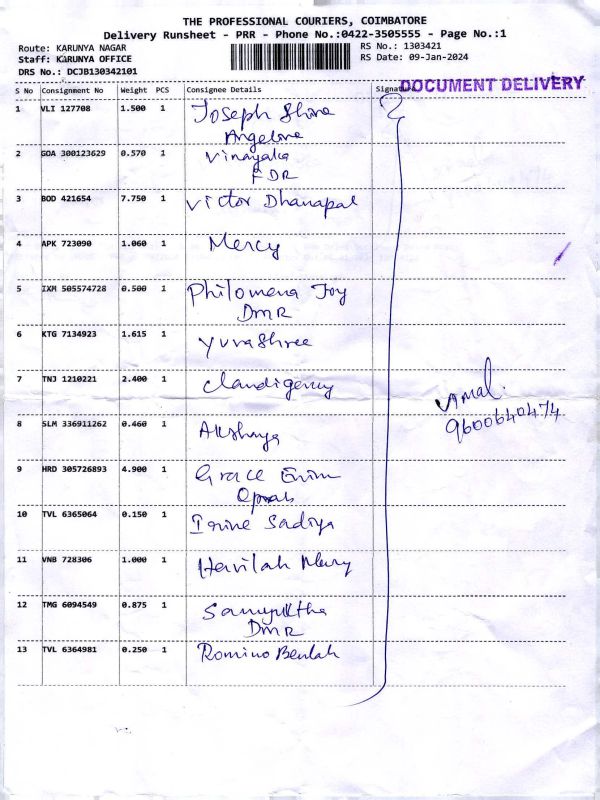 THE PROFESSIONAL COURIERS, COIMBATORE
Delivery Runsheet - PRR - Phone No.:0422-3505555 - Page No.:1
Route: KARUNYA NAGAR
Staff: KARUNYA OFFICE
DRS No.: DCJB130342101
RS No.: 1303421
RS Date: 09-Jan-2024
DOCUMENT DELIVERY
S No Consignment No Weight PCS Consignee Details
1 VLI 127708 1.500 1 Joseph Shine
Angeline
2 GOA 300123629 0.570 1 Vinayaka
FDR
3 BOD 421654 7.750 1 Victor Dhanapal
4 APK 723090 1.060 1 Mercy
5 IXM 505574728 0.500 1 Philomena Joy
DMR
6 KTG 7134923 1.615 1 Yuvashree
7 TNJ 1210221 2.400 1
8 SLM 336911262 0.460 1 Akshaya
9 HRD 305726893 4.900 1 Grace
10 TVL 6365064 0.150 1 Irine Sadiya
11 VNB 728306 1.000 1 Havilah Mercy
12 TMG 6094549 0.875 1 Samyuktha
DMR
13 TVL 6364981 0.250 1 Romino Beulah
Amal.
9600640474